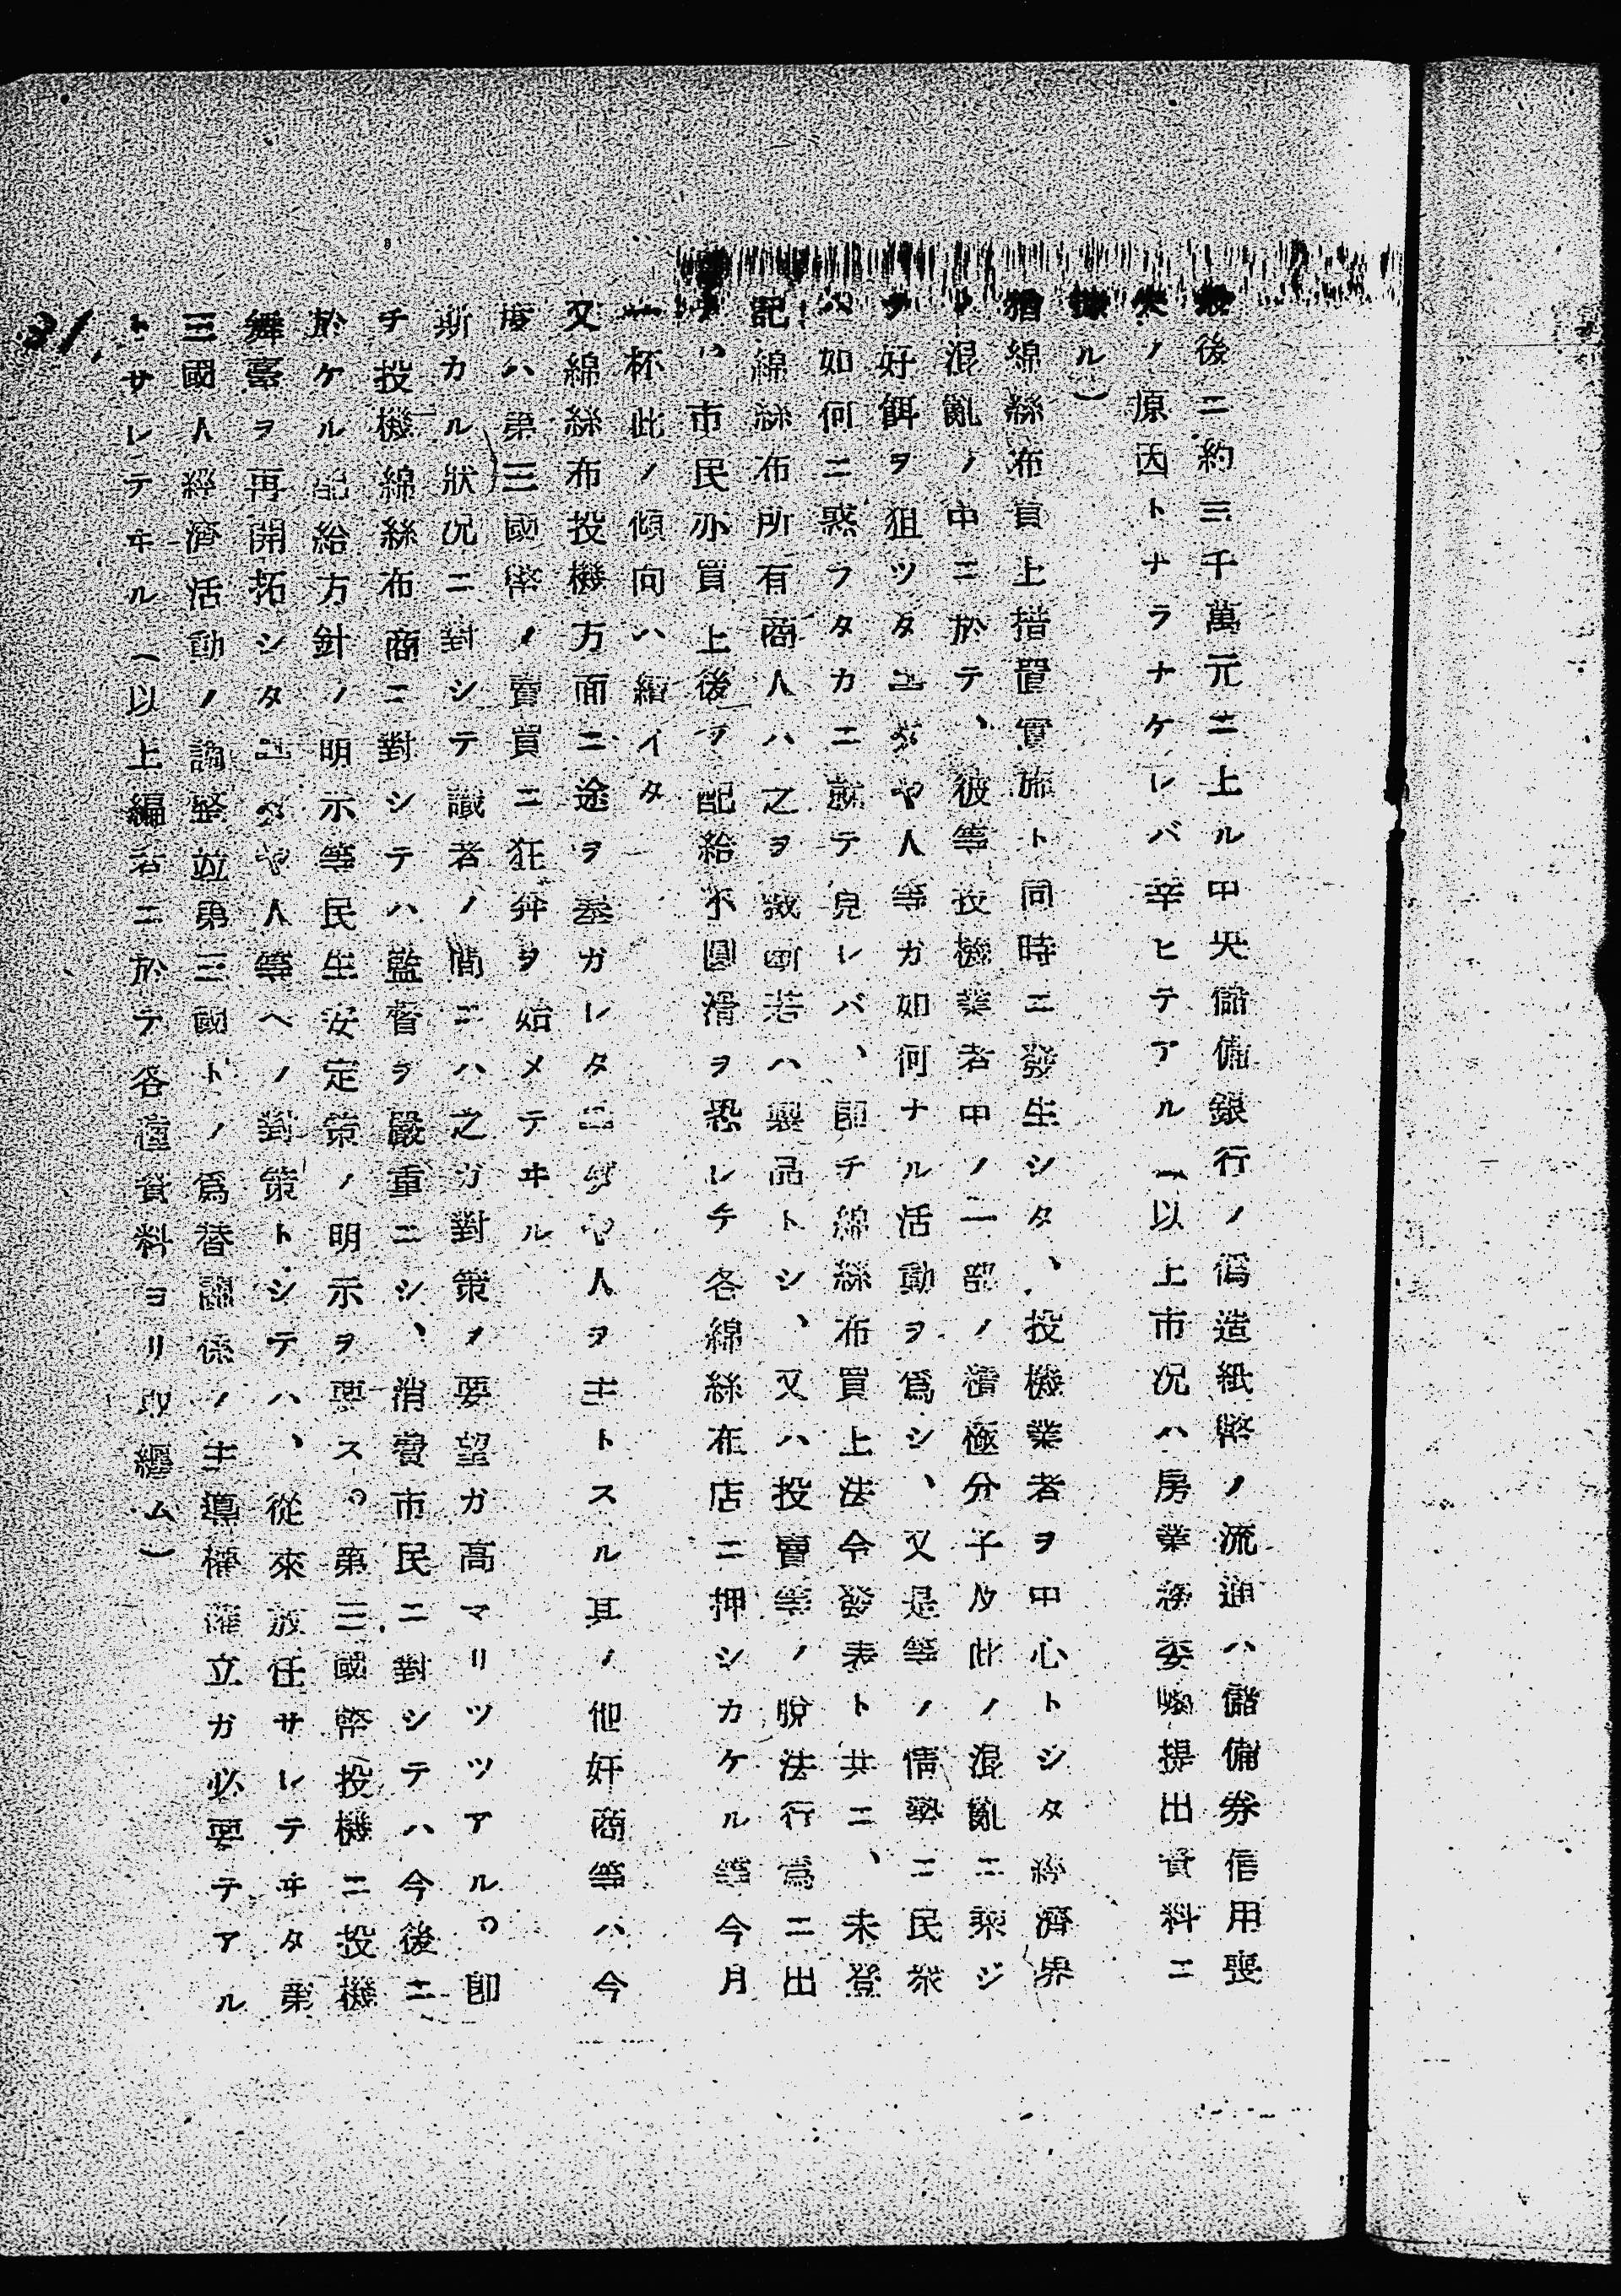 最後ニ約三千萬元ニ上ル中央儲備銀行ノ僞造紙幣ノ流通ハ儲備券信用喪
失ノ原因トナラナケレバ幸ヒテアル（以上市況ハ房業務委員提出資料ニ
據ル）
猶綿絲布買上措置實施ト同時ニ發生シタ、投機業者ヲ中心トシタ經濟界
ノ混亂ノ中ニ於テ、彼等投機業者中ノ一部ノ積極分子及此ノ混亂ニ乘ジ
テ好餌ヲ狙ツタユダヤ人等ガ如何ナル活動ヲ爲シ、又是等ノ情勢ニ民衆
ハ如何ニ惑フタカニ就テ見レバ、即チ綿絲布買上法令發表ト共ニ、未登
記綿絲布所有商人ハ之ヲ裁斷若ハ製品トシ、又ハ投賣等ノ脱法行爲ニ出
デ、市民亦買上後ノ配給不圓滑ヲ恐レテ各綿絲布店ニ押シカケル等今月
一杯此ノ傾向ハ續イタ
又綿絲布投機方面ニ途ヲ塞ガレタユダヤ人ヲ主トスル其ノ他奸商等ハ今
度ハ第三國幣ノ賣買ニ狂奔ヲ始メテヰル
斯カル狀況ニ對シテ識者ノ間ニハ之ガ對策ノ要望ガ高マリツツアル。即
チ投機綿絲布商ニ對シテハ監督ヲ嚴重ニシ、消費市民ニ對シテハ今後ニ
於ケル配給方針ノ明示等民生安定策ノ明示ヲ要ス。第三國幣投機ニ投機
舞臺ヲ再開拓シタユダヤ人等ヘノ對策トシテハ、從來放任サレテヰタ第
三國人經濟活動ノ調整竝第三國トノ爲替關係ノ主導權確立ガ必要テアル
トサレテヰル（以上編者ニ於テ各種資料ヨリ取纏ム）
31.